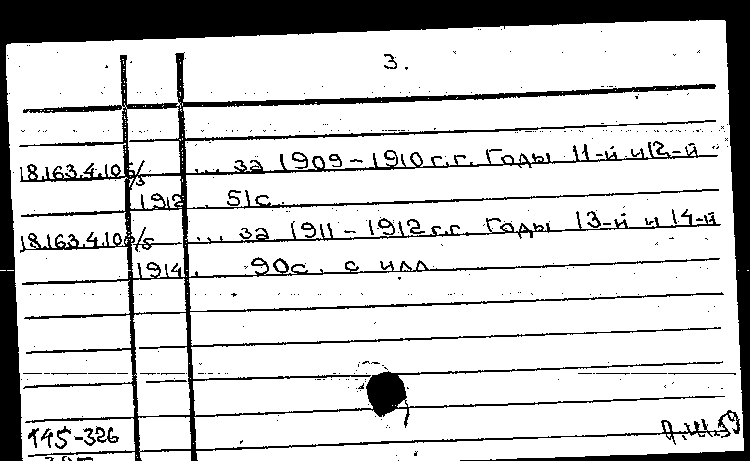 3.
18.163.4.106/5 ... за 1909-1910 г.г. Годы 11-й и 12-й
1912. 51с.
18.163.4.106/5 ... за 1911-1912 г.г. Годы 13-й и 14-й
1914. 90с. с илл
145-326